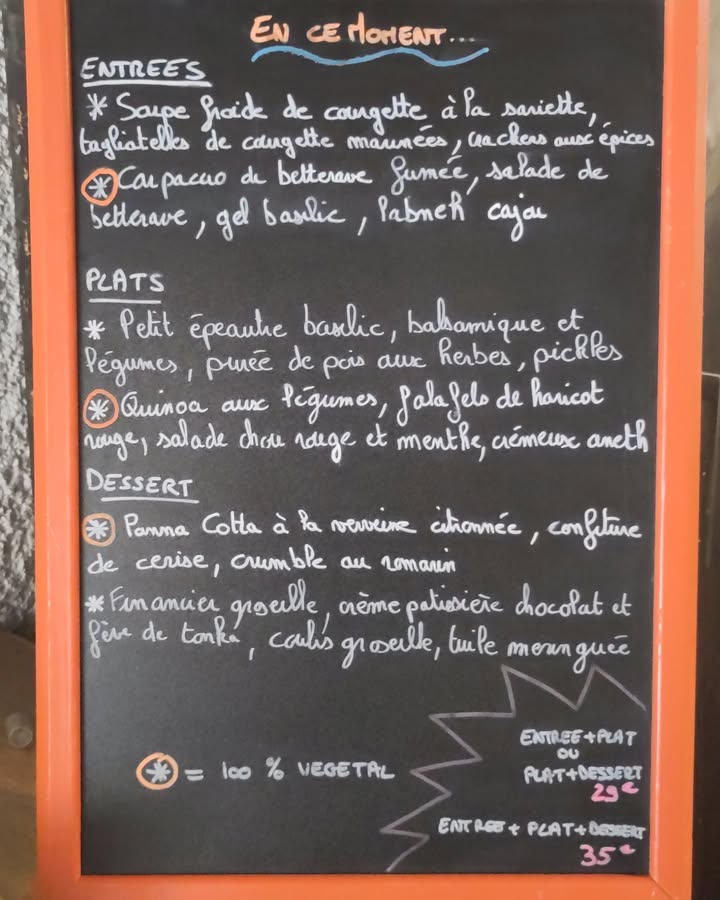 EN CE MOMENT...
ENTREES
* Soupe froide de courgette à la sariette,
tagliatelles de courgette marinées, crackers aux épices
* Carpaccio de betterave fumée, salade de
betterave, gel basilic, labneh cajou
PLATS
* Petit épeautre basilic, balsamique et
légumes, purée de pois aux herbes, pickles
* Quinoa aux légumes, falafels de haricot
rouge, salade chou rouge et menthe, crémeux aneth
DESSERT
* Panna Cotta à la verveine citronnée, confiture
de cerise, crumble au romarin
* Financier groseille, crème patissière chocolat et
fève de tonka, coulis groseille, tuile meringuée
* = 100 % VEGETAL
ENTREE+PLAT
OU
PLAT+DESSERT
29€
ENTREE + PLAT+DESSERT
35€